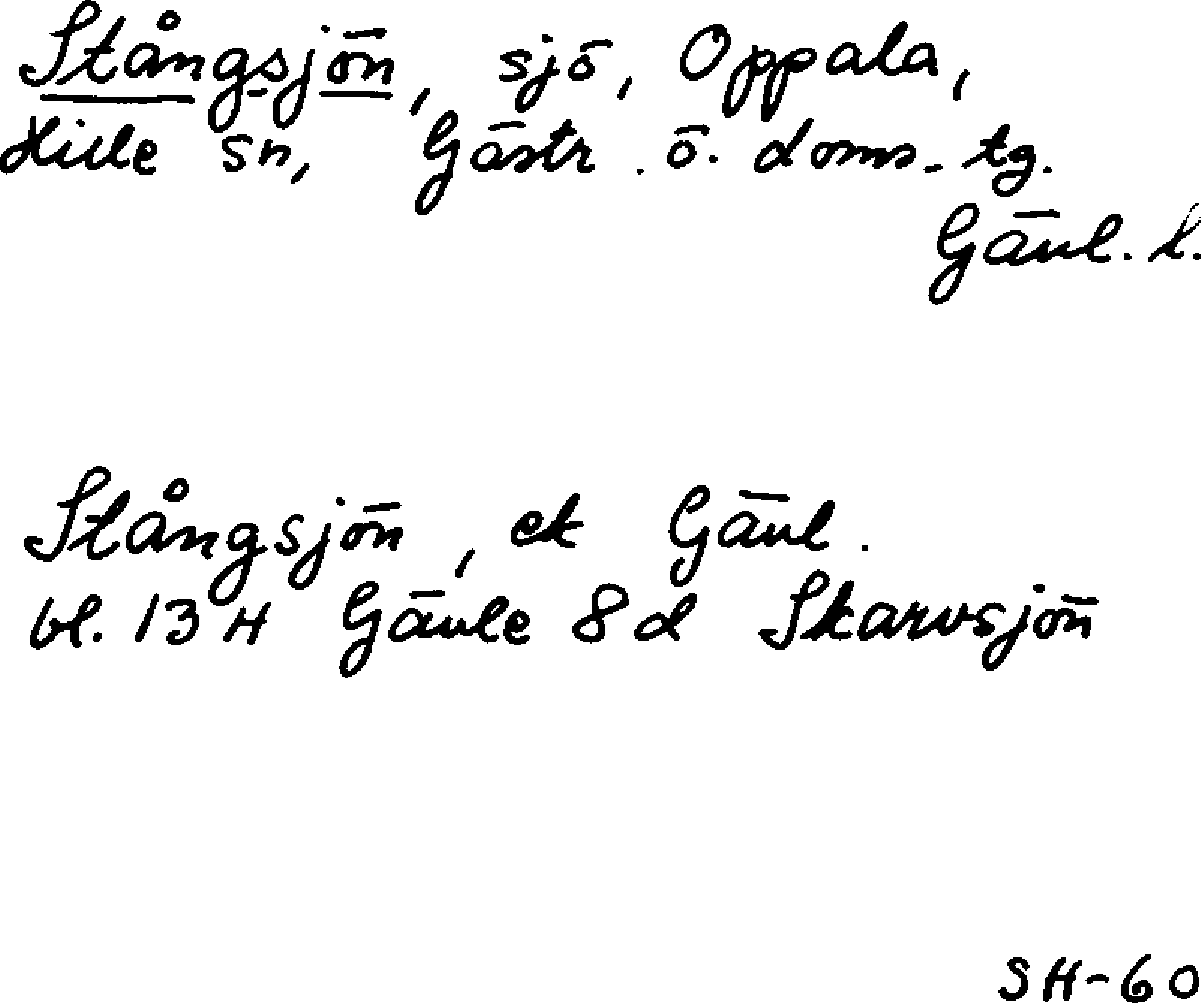 Stångsjön, sjö, Oppala,
Hille sn, Gästr. ö. doms.tg.
Gävl. l.
Stångsjön, ek Gävl.
bl. 13 H Gävle 8 d Skarvsjön
SH-60